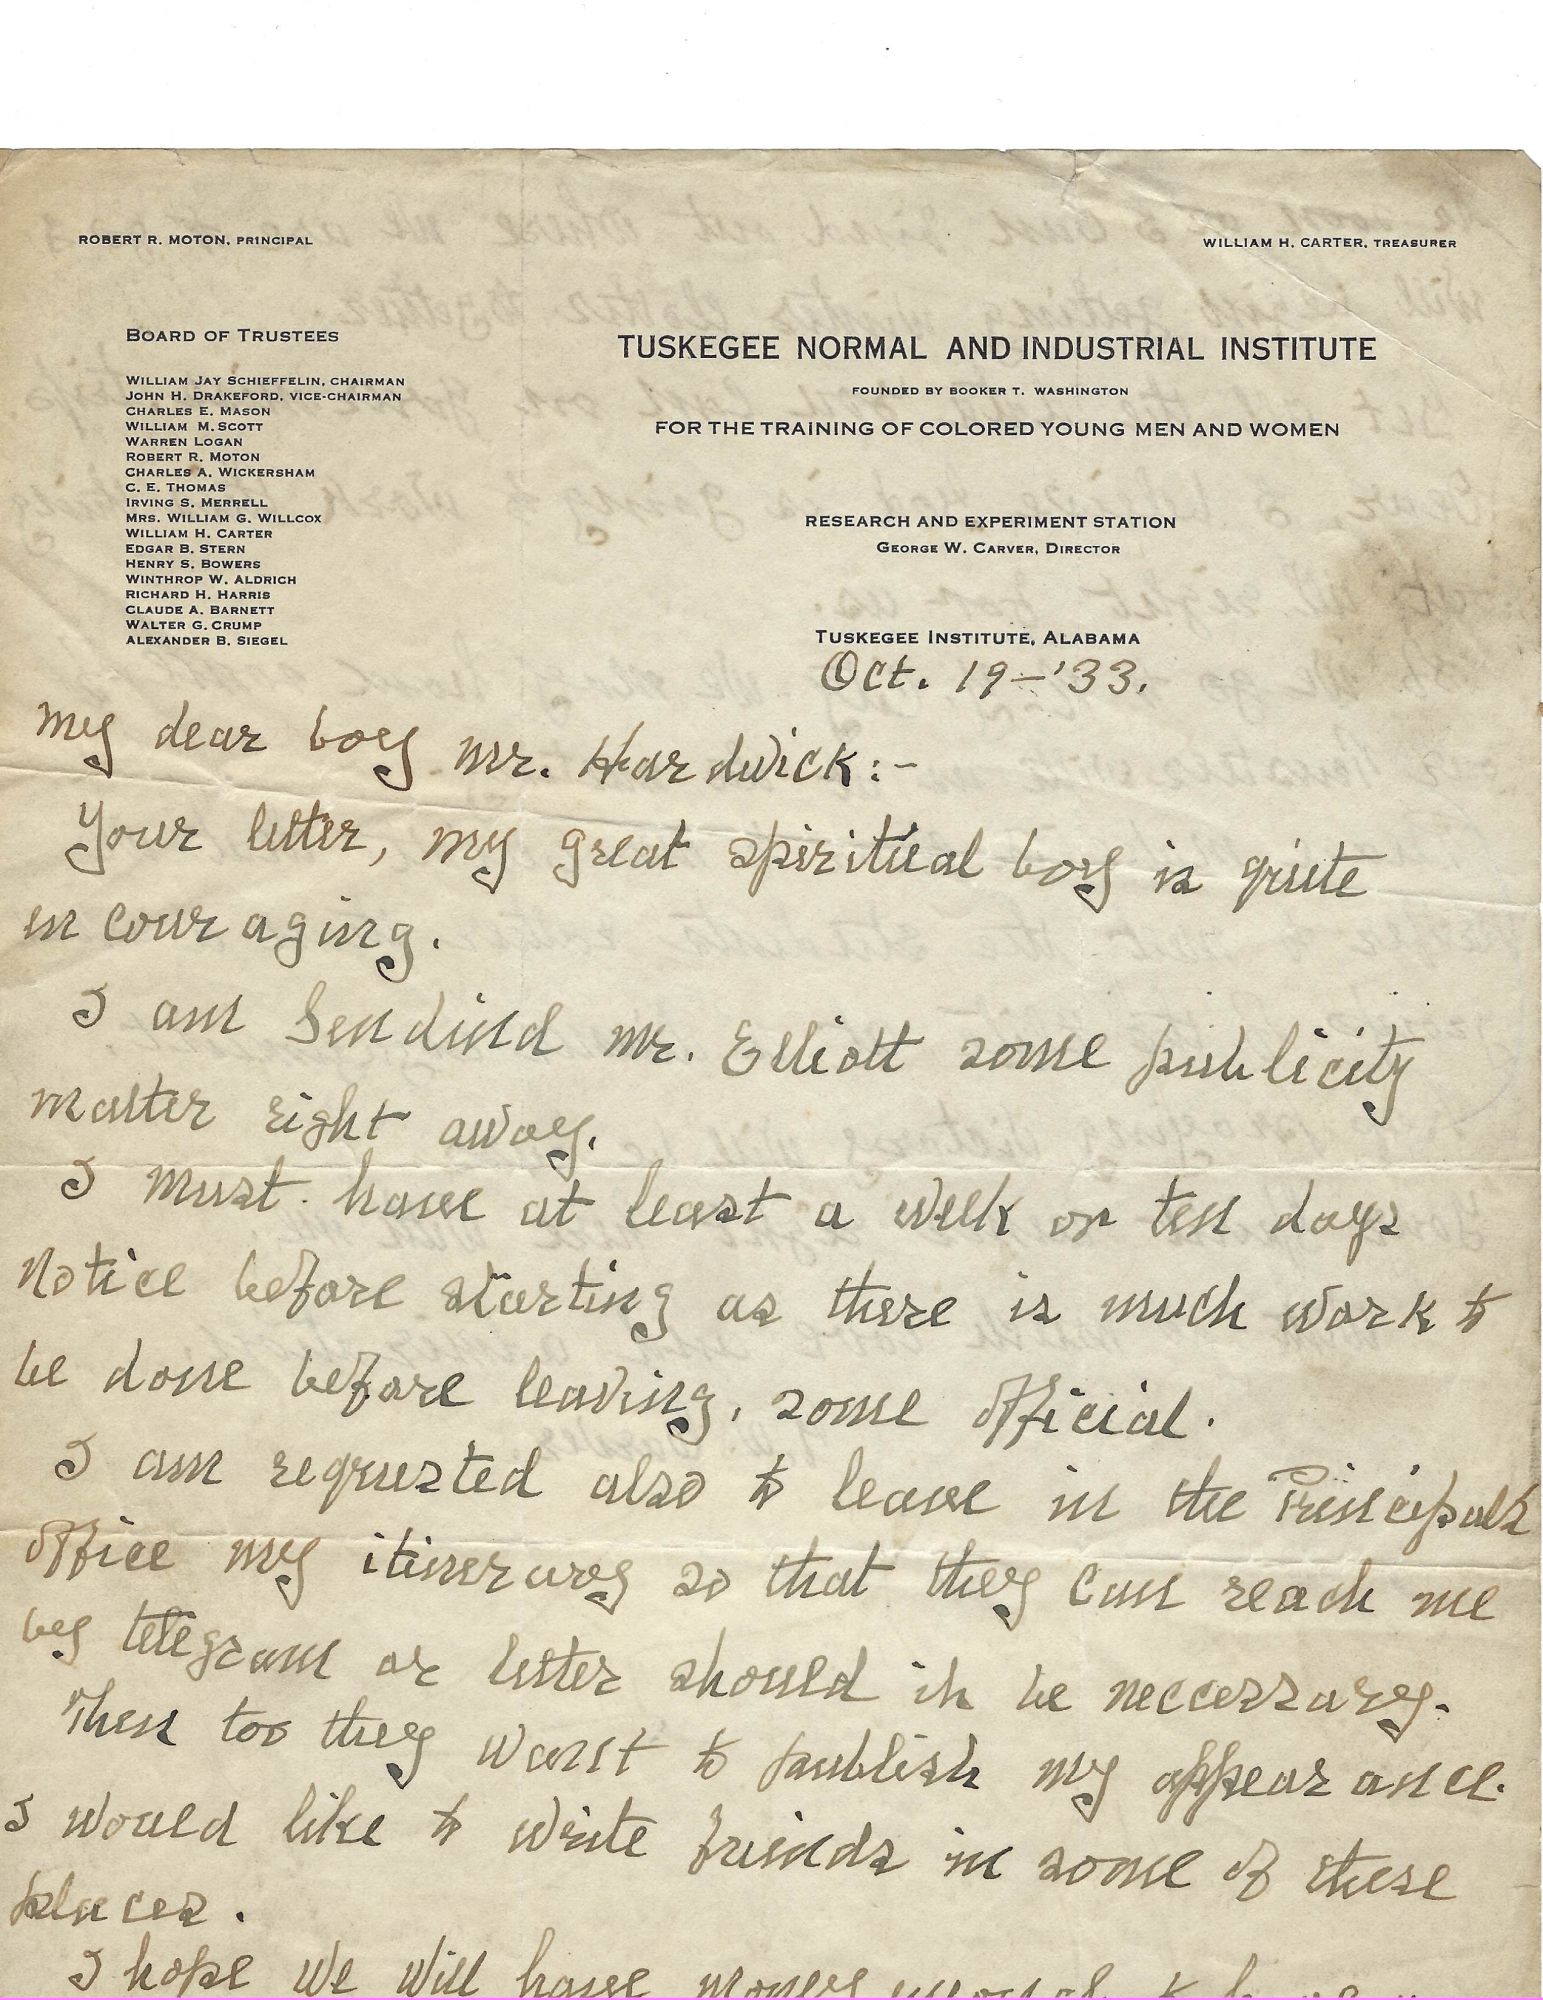 ROBERT R. MOTON, PRINCIPAL
WILLIAM H. CARTER, TREASURER
BOARD OF TRUSTEES
WILLIAM JAY SCHIEFFELIN, CHAIRMAN
JOHN H. DRAKEFORD, VICE-CHAIRMAN
CHARLES E. MASON
WILLIAM M. SCOTT
WARREN LOGAN
ROBERT R. MOTON
CHARLES A. WICKERSHAM
C. E. THOMAS
IRVING S. MERRELL
MRS. WILLIAM G. WILLCOX
WILLIAM H. CARTER
EDGAR B. STERN
HENRY S. BOWERS
WINTHROP W. ALDRICH
RICHARD H. HARRIS
CLAUDE A. BARNETT
WALTER G. CRUMP
ALEXANDER B. SIEGEL
TUSKEGEE NORMAL AND INDUSTRIAL INSTITUTE
FOUNDED BY BOOKER T. WASHINGTON
FOR THE TRAINING OF COLORED YOUNG MEN AND WOMEN
RESEARCH AND EXPERIMENT STATION
GEORGE W. CARVER, DIRECTOR
TUSKEGEE INSTITUTE, ALABAMA
Oct. 19-'33.
My dear boy Mr. Hardwick:-
Your letter, my great spiritual boy is quite
encouraging.
I am sendind Mr. Elliott some publicity
matter right away.
I must have at least a week or ten days
notice before starting as there is much work to
be done before leaving, some official.
I am requested also to leave in the Principals
office my itinerary so that they can reach me
by telegram or letter should it be neccessary.
Then too they want to publish my appearance.
I would like to write friends in some of these
places.
I hope we will have money enough to